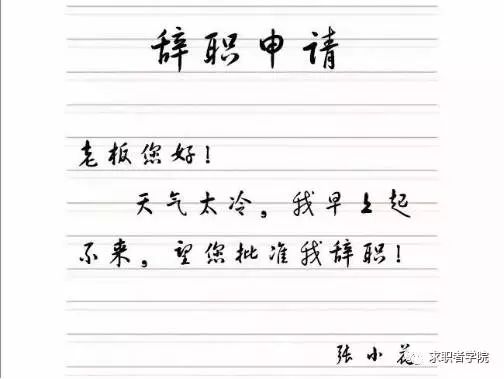 辞职申请
老板您好!
天气太冷，我早上起
不来，望您批准我辞职!
张小花
求职者学院